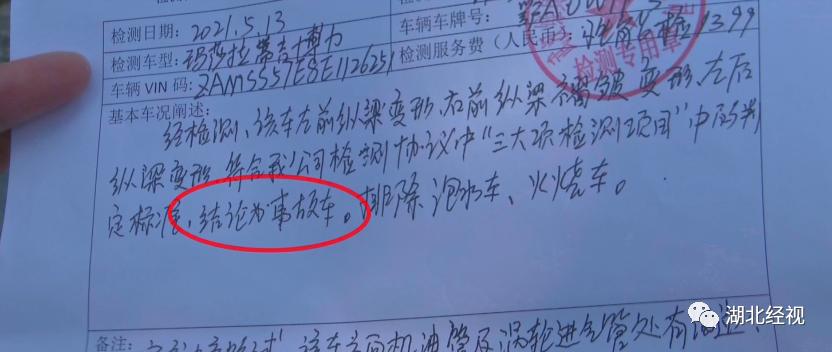 检测日期： 2021.5.13 车辆车牌号：
检测车型: 玛莎拉蒂吉博力 检测服务费（人民币）: 1399
车辆 VIN 码: ZAMSS57E8E1126251
检测专用章
基本车况阐述:
经检测，该车左前纵梁变形，右前纵梁褶皱变形，左后
纵梁变形，符合我公司检测协议中“三大项检测项目”中的判
定标准，结论为事故车。排除泡水车、火烧车。
备注:
该车 机油管及涡轮进气管处有
湖北经视